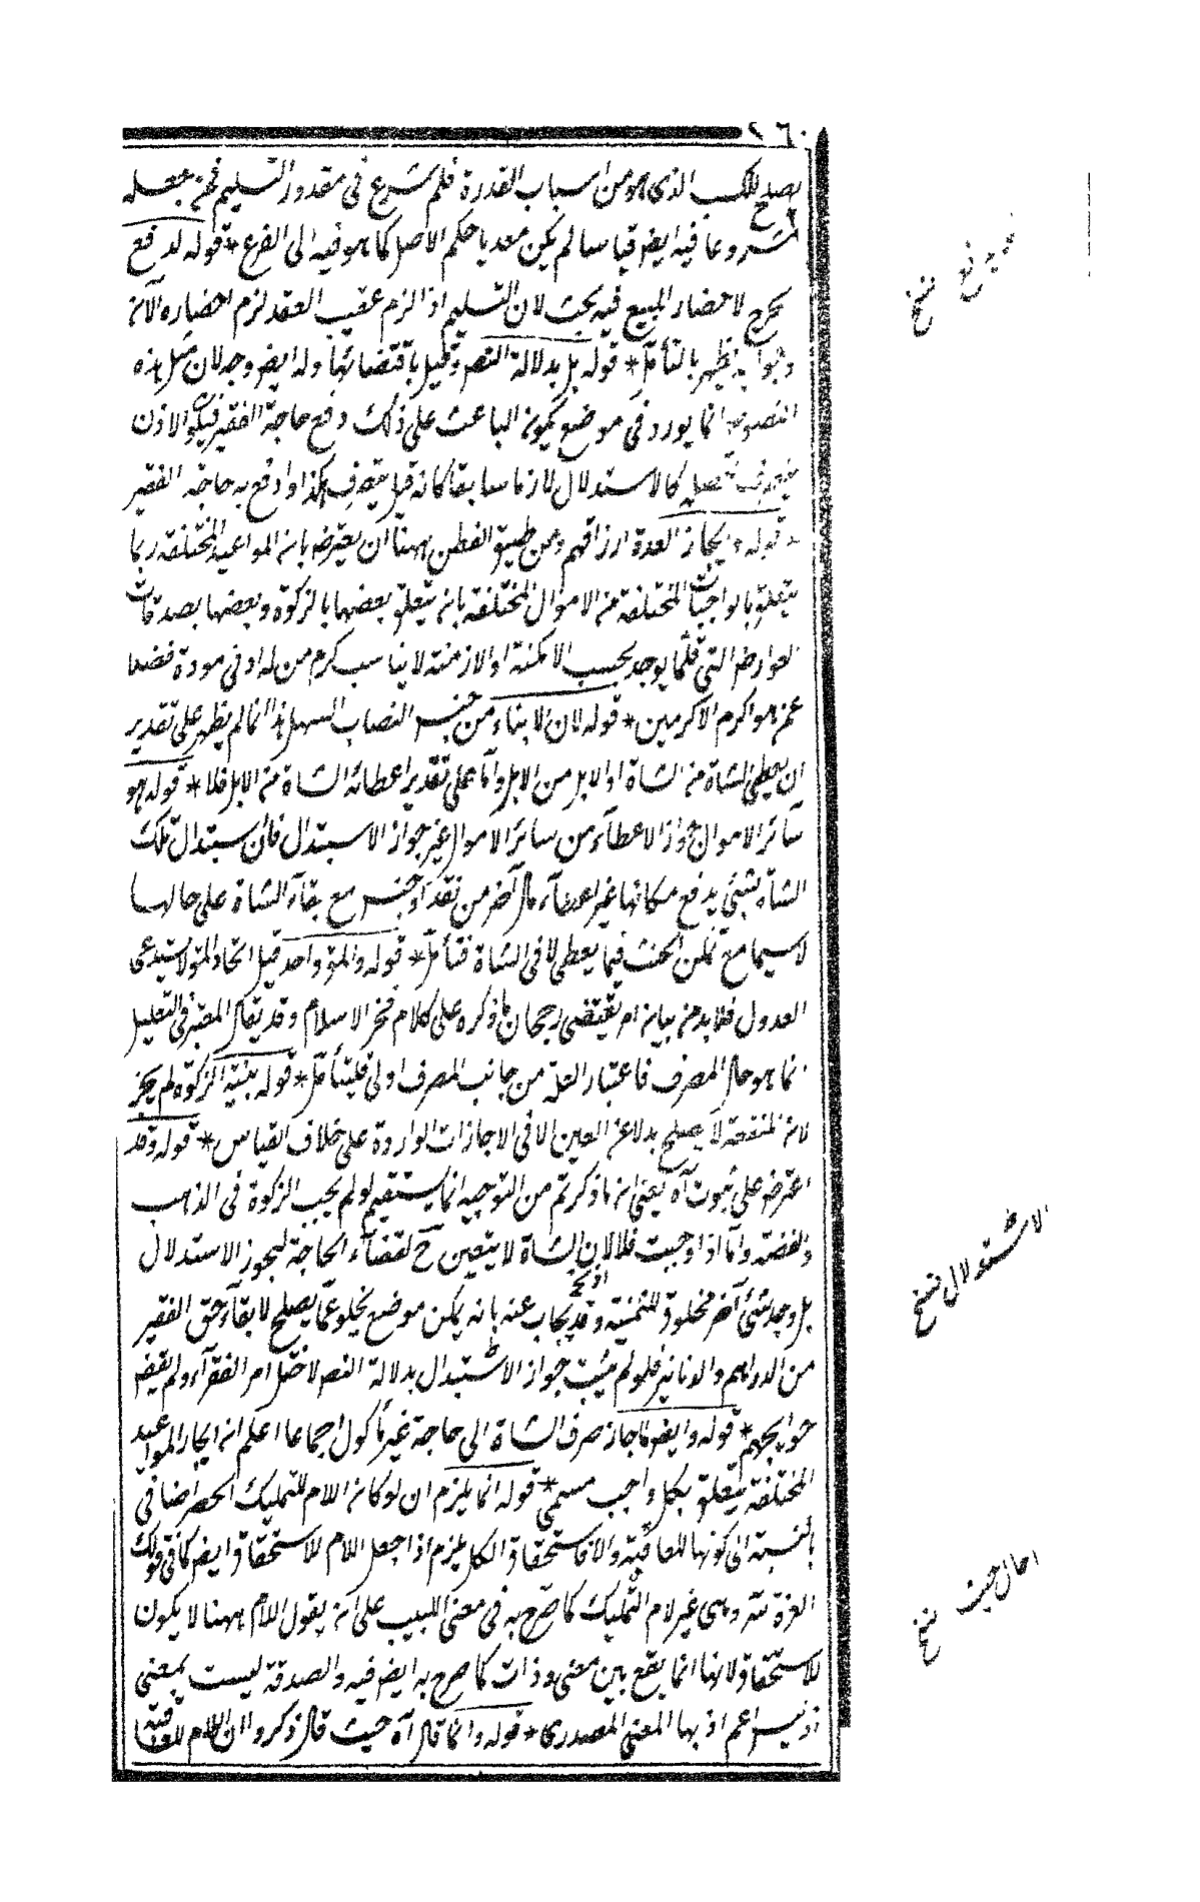 ٢٦٠
يصلح للكسب الذى هو من اسباب القدرة فلم شرع فى مقدور التسليم فمن جعله
مشروعا فيه ايض قياسا لم يكن معديا حكم الاصل كما هو فيه الى الفرع * قوله لدفع
تحرج لاحضار المبيع فيه بحث لان التسليم اذا لزم عقيب العقد لزم احضاره الآن
وجوابه يظهر بالتأمل * قوله بل بدلالة النص وقيل باقتضائها وله ايض وجه لان مثل هذه
النصوص انما يورد فى موضع يكون الباعث على ذلك دفع حاجة الفقير فيكون الاذن
كالاستدلال لازما سابقا كانه قيل بكذا وادفع به حاجة الفقير
* قوله وايجاز العدة ارزاقهم ومن ههنا ان يعترض بان المواعيد المختلفة ربما
يتعلق بالواجبات المختلفة من الاموال المختلفة بان يتعلق بعضها بالزكوة وبعضها بصدقات
العوارض التى قلما يوجد بحسب الامكنة او الازمنة لا يناسب كرم من له ادنى مودة فضلا
عمن هو اكرم الاكرمين * قوله لان الايتاء من جنس النصاب اسهل هذا انما لم يظهر على تقدير
ان يعطى الشاة من الشاة او الابل من الابل واما على تقدير اعطائه الشاة من الابل فلا * قوله هو
سائر الاموال جواز الاعطاء من سائر الاموال غير جواز الاستبدال فان استبدال تلك
الشاة بشئ يدفع مكانها غير اعطاء مال آخر من نقد او جنس مع بقاء الشاة على حالها
لا سيما مع تمكن الخبث فيما يعطى لا فى الشاة فتأمل * قوله والمؤ واحد قيل اتحاد المؤ لا يستدعى
العدول فلا بد من بيان امر يقتضى رجحان ما ذكره على كلام فخر الاسلام وقد يقال المعتبر فى التعليل
انما هو حال المصرف فاعتبار العلة من جانب المصرف اولى فليتأمل * قوله بنية الزكوة لم يجز
لان المنفعة لا يصلح بدلا عن العين الا فى الاجازات الواردة على خلاف القياس * قوله وقد
اعترض على ثبوت آه يعنى ان ما ذكرتم من التوجيه انما يستقيم لو لم يجب الزكوة فى الذهب
والفضة واما اذا وجبت فلا لان الشاة لا يتعين ح لقضاء الحاجة ليجوز الاستدلال
بل وجد شئ آخر مخلوق للثمنية وقد يجاب عنه بانه يمكن موضع يخلو عما يصلح لابقاء حق الفقير
من الدراهم والدنانير فلو لم يثبت جواز الاستبدال بدلالة النص لاختل امر الفقراء ولم يقض
حوايجهم * قوله وايض لما جاز صرف الشاة الى حاجة غير مأكول اجماعا اعلم ان ايجاز المواعيد
المختلفة يتعلق بكل واجب مسمى * قوله انما يلزم ان لو كان اللام للتمليك الحصر اضافى
بالنسبة الى كونها للعاقبة والا فاستحقاق الكل يلزم اذا جعل اللام للاستحقاق ايض كما فى قولك
العزة لله وهى غير لام التمليك كما صرح به فى معنى اللبيب على ان يقول اللام ههنا لا يكون
للاستحقاق لانها انما يقع بين معنى وذات كما صرح به ايض فيه والصدقة ليست بمعنى
اذ ليس اعم اذ بها المعنى المصدرى * قوله وانما قال آه حيث قال ذكروا ان اللام للعاقبة
نسخ
الاستدلال نسخ
احال حيث نسخ